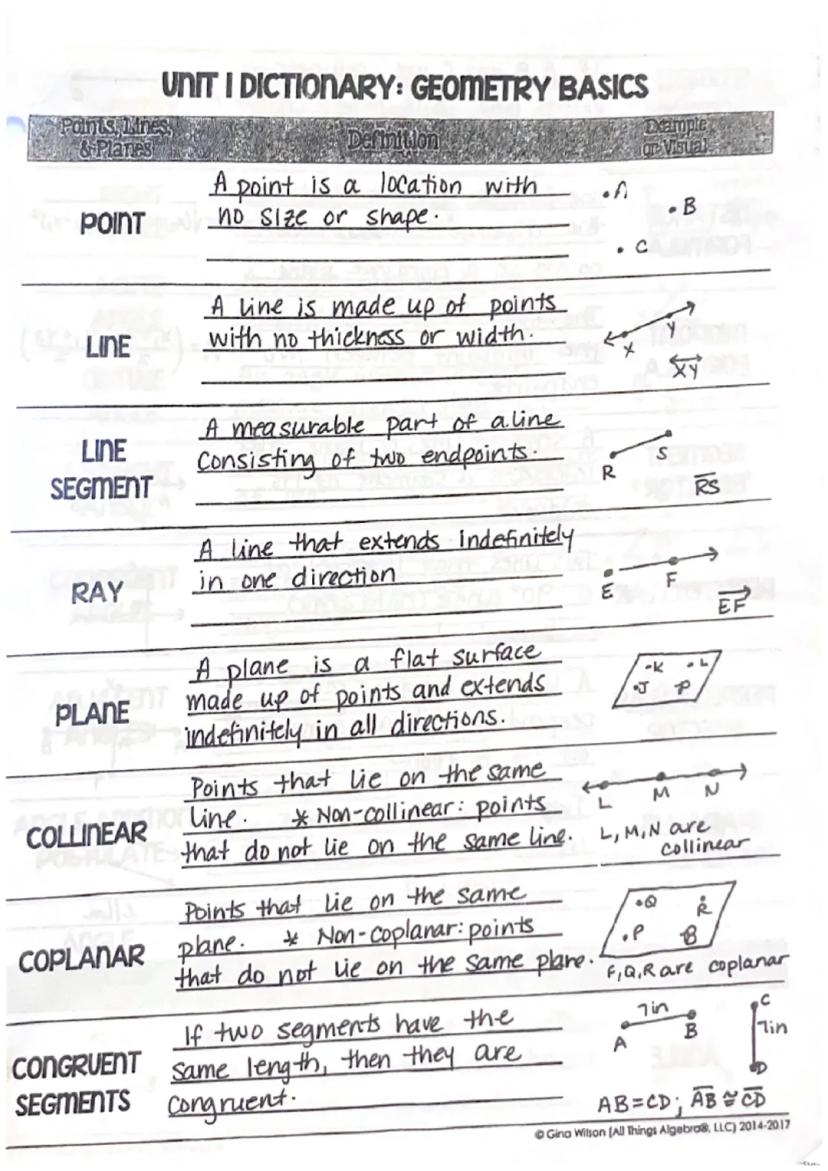 UNIT 1 DICTIONARY: GEOMETRY BASICS
Points, Lines, & Planes
Definition
Example or Visual
POINT
A point is a location with
no size or shape.
• A
• B
• C
LINE
A line is made up of points
with no thickness or width.
X
Y
XY
LINE
SEGMENT
A measurable part of a line
Consisting of two endpoints.
R
S
RS
RAY
A line that extends indefinitely
in one direction
E
F
EF
PLANE
A plane is a flat surface
made up of points and extends
indefinitely in all directions.
•K •L
•J •P
COLLINEAR
Points that lie on the same
line. * Non-collinear: points
that do not lie on the same line.
L M N
L, M, N are
collinear
COPLANAR
Points that lie on the same
plane. * Non-coplanar: points
that do not lie on the same plane.
•Q R
•P
F, Q, R are coplanar
CONGRUENT
SEGMENTS
If two segments have the
same length, then they are
congruent.
7in
A B
C
7in
D
AB = CD; AB ≅ CD
© Gina Wilson (All Things Algebra®, LLC) 2014-2017